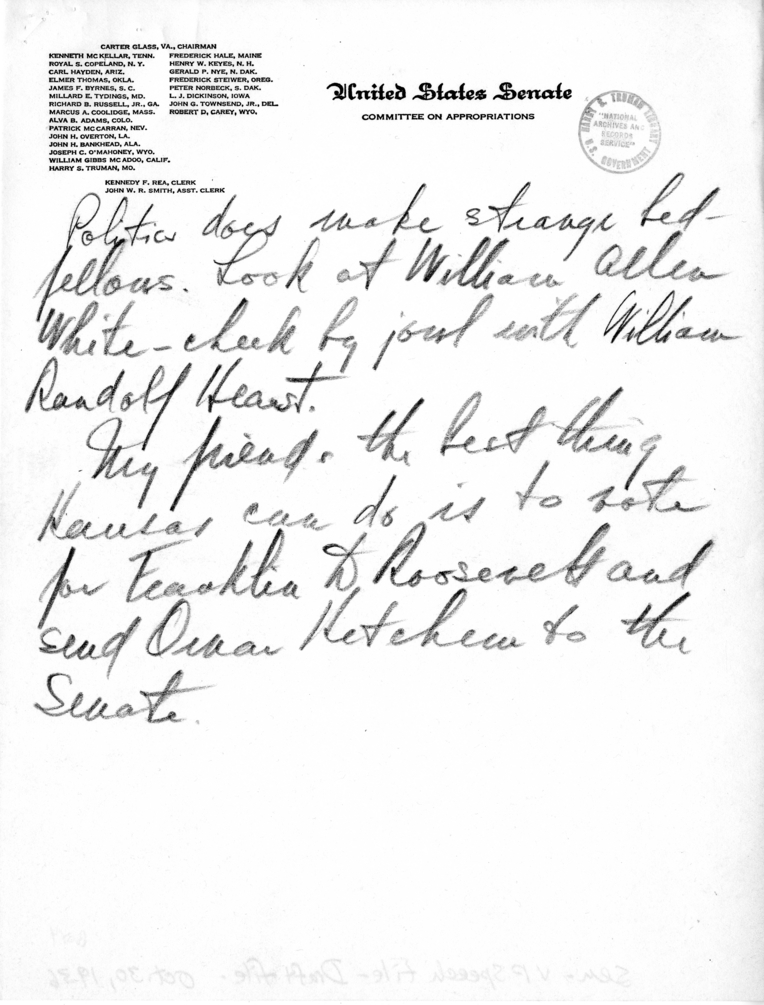 CARTER GLASS, VA., CHAIRMAN
KENNETH MCKELLAR, TENN.
ROYAL S. COPELAND, N. Y.
CARL HAYDEN, ARIZ.
ELMER THOMAS, OKLA.
JAMES F. BYRNES, S. C.
MILLARD E. TYDINGS, MD.
RICHARD B. RUSSELL, JR., GA.
MARCUS A. COOLIDGE, MASS.
ALVA B. ADAMS, COLO.
PATRICK MCCARRAN, NEV.
JOHN H. OVERTON, LA.
JOHN H. BANKHEAD, ALA.
JOSEPH C. O'MAHONEY, WYO.
WILLIAM GIBBS MCADOO, CALIF.
HARRY S. TRUMAN, MO.
FREDERICK HALE, MAINE
HENRY W. KEYES, N. H.
GERALD P. NYE, N. DAK.
FREDERICK STEIWER, OREG.
PETER NORBECK, S. DAK.
L. J. DICKINSON, IOWA
JOHN G. TOWNSEND, JR., DEL.
ROBERT D. CAREY, WYO.
KENNEDY F. REA, CLERK
JOHN W. R. SMITH, ASST. CLERK
United States Senate
COMMITTEE ON APPROPRIATIONS
HARRY S. TRUMAN LIBRARY
"NATIONAL
ARCHIVES AND
RECORDS
SERVICE"
U.S. GOVERNMENT
Politics does make strange bed-
fellows. Look at William Allen
White-cheek by jowl with William
Randolf Hearst.
My friends the best thing
Kansas can do is to vote
for Franklin D Roosevelt and
send Omar Ketchem to the
Senate.
Sen - VP Speech File - Draft file - Oct 30, 1936